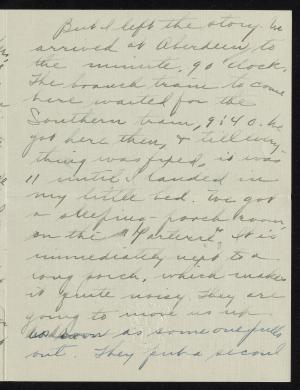 But I left the story. We
arrived at Aberdeen to
the minute, 9 o'clock.
The branch train to come
here waited for the
Southern train, 9:40. We
got here then, & till every-
thing was fixed, it was
11 until I landed in
my little bed. We got
a sleeping-porch room
on the "Parterre". It is
immediately next to a
long porch, which makes
it quite noisy. They are
going to move us up
as soon as someone pulls
out. They put a second